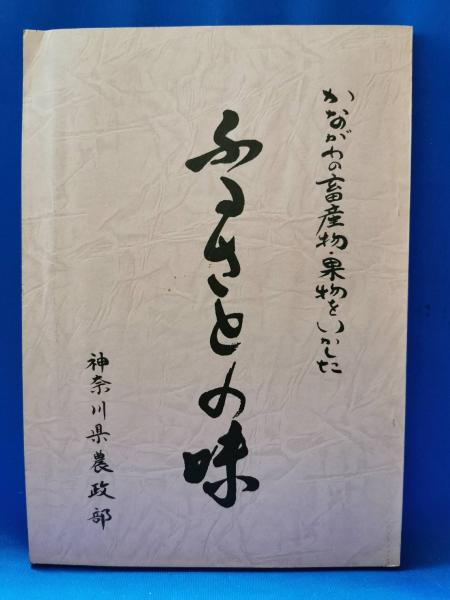 かながわの畜産物・果物をいかした
ふるさとの味
神奈川県農政部